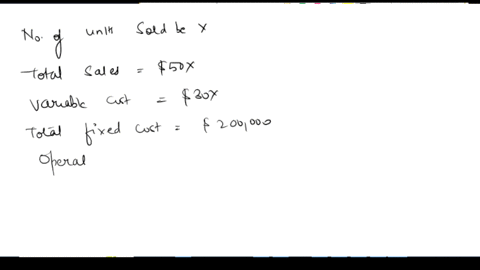 No. of units sold be x
Total sales = $50x
Variable cost = $30x
Total fixed cost = $200,000
Operat